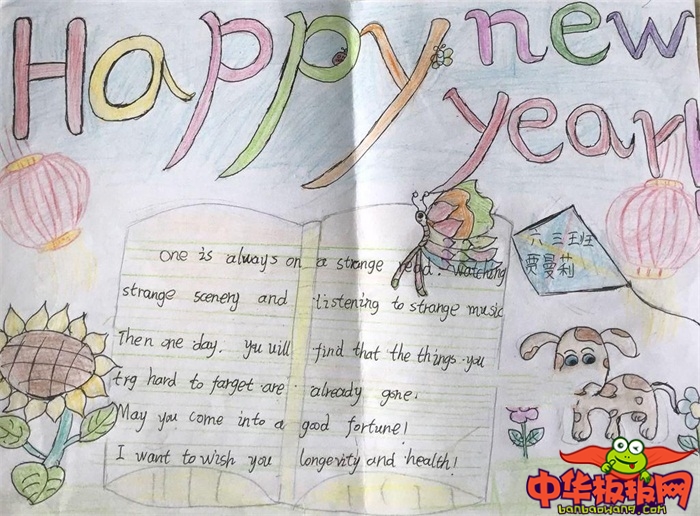 Happy new
year!
六三班
贾曼莉
One is always on a strange read. watching
strange scenery and listening to strange music
Then one day. yu will find that the things you
trg hard to farget are already gone.
May you come into a good fortune!
I want to wish you longevity and health!
中华板报网
banbaowang.com